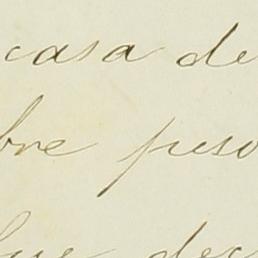 casa de
bre peso
que dec